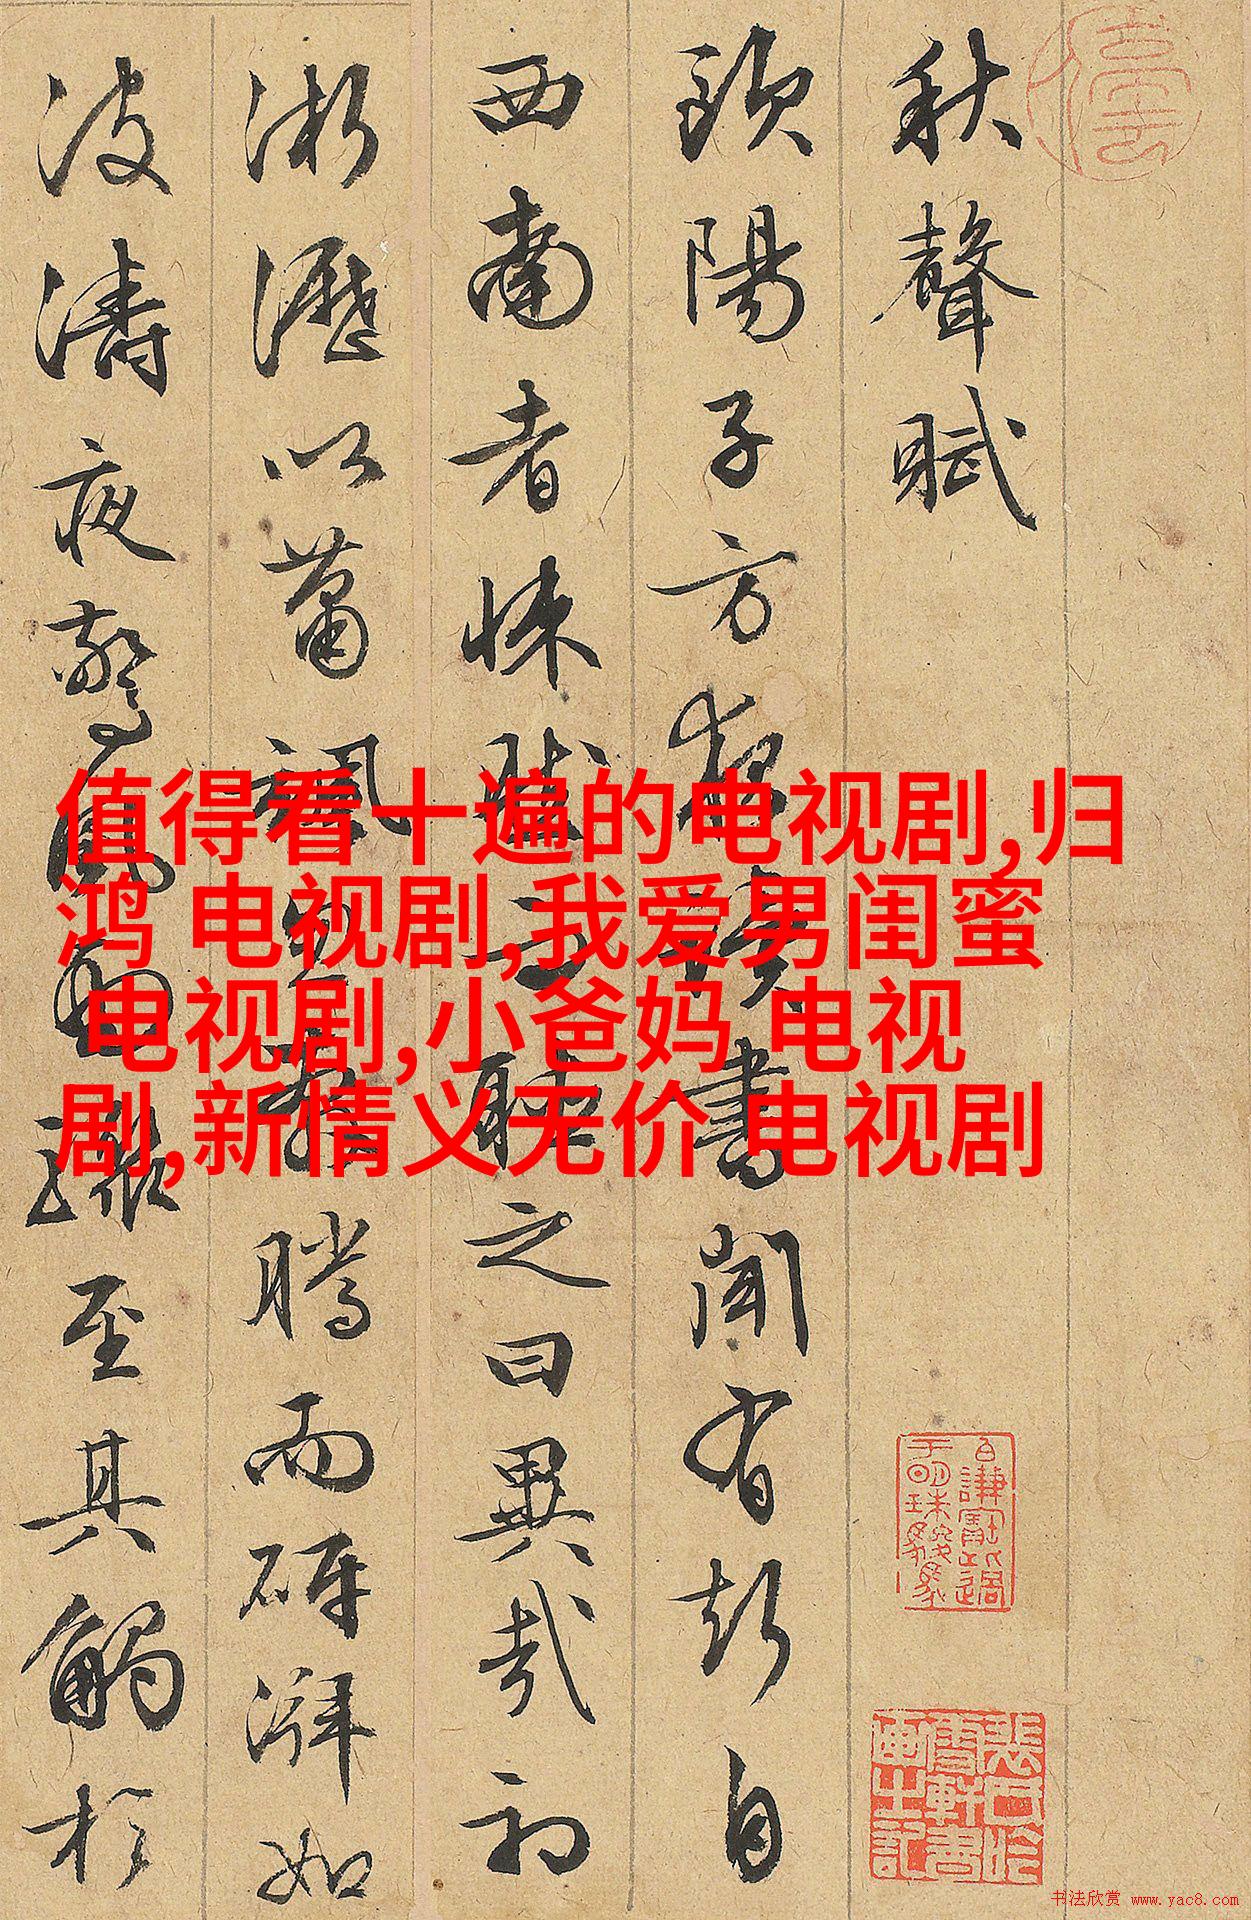 秋聲賦
歐陽子方夜讀書聞有聲自
西南者悚然而聽之曰異哉初
淅瀝以蕭颯忽奔騰而砰湃如
波濤夜驚風雨驟至其觸於
值得看十遍的电视剧,归
鸿 电视剧,我爱男闺蜜
电视剧,小爸妈 电视
剧,新情义无价 电视剧
书法欣赏 www.yac8.com